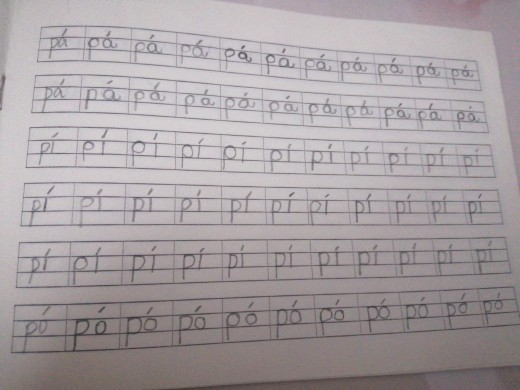 pá pá pá pá pá pá pá pá pá pá pá
pá pá pá pá pá pá pá pá pá pá pá
pí pí pí pí pí pí pí pí pí pí pí
pí pí pí pí pí pí pí pí pí pí pí
pí pí pí pí pí pí pí pí pí pí pí
pó pó pó pó pó pó pó pó pó pó pó